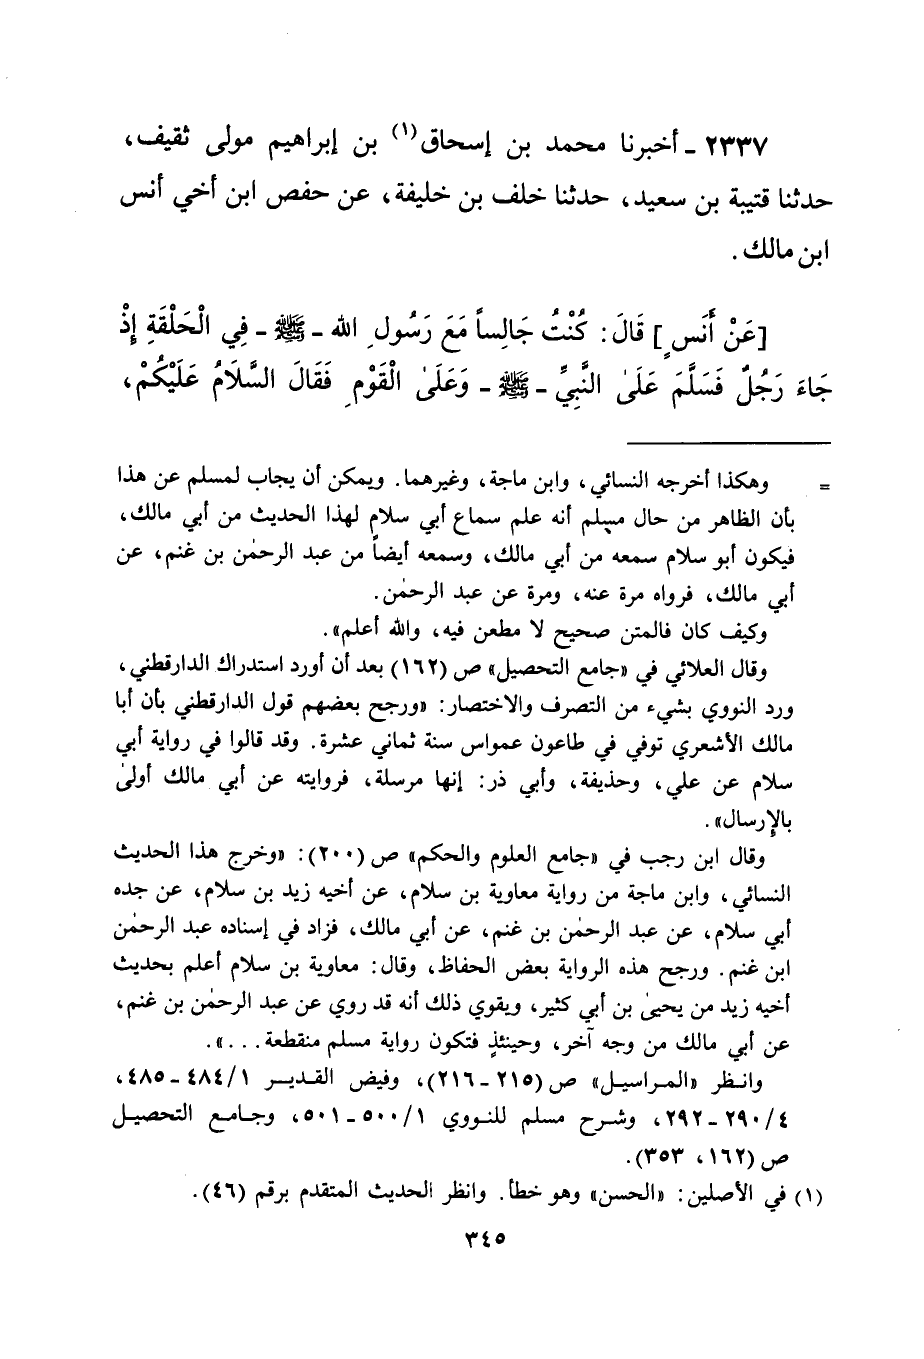 ٢٣٣٧ - أخبرنا محمد بن إسحاق(١) بن إبراهيم مولى ثقيف،
حدثنا قتيبة بن سعيد، حدثنا خلف بن خليفة، عن حفص ابن أخي أنس
ابن مالك.
[عَنْ أَنَسٍ] قَالَ: كُنْتُ جَالِساً مَعَ رَسُولِ الله - ﷺ - فِي الْحَلْقَةِ إِذْ
جَاءَ رَجُلٌ فَسَلَّمَ عَلَىٰ النَّبِيِّ - ﷺ - وَعَلَىٰ الْقَوْمِ فَقَالَ السَّلَامُ عَلَيْكُمْ،
= وهكذا أخرجه النسائي، وابن ماجة، وغيرهما. ويمكن أن يجاب لمسلم عن هذا
بأن الظاهر من حال مسلم أنه علم سماع أبي سلام لهذا الحديث من أبي مالك،
فيكون أبو سلام سمعه من أبي مالك، وسمعه أيضاً من عبد الرحمٰن بن غنم، عن
أبي مالك، فرواه مرة عنه، ومرة عن عبد الرحمٰن.
وكيف كان فالمتن صحيح لا مطعن فيه، والله أعلم».
وقال العلائي في «جامع التحصيل» ص (١٦٢) بعد أن أورد استدراك الدارقطني،
ورد النووي بشيء من التصرف والاختصار: «ورجح بعضهم قول الدارقطني بأن أبا
مالك الأشعري توفي في طاعون عمواس سنة ثماني عشرة. وقد قالوا في رواية أبي
سلام عن علي، وحذيفة، وأبي ذر: إنها مرسلة، فروايته عن أبي مالك أولىٰ
بالإرسال».
وقال ابن رجب في «جامع العلوم والحكم» ص (٢٠٠): «وخرج هذا الحديث
النسائي، وابن ماجة من رواية معاوية بن سلام، عن أخيه زيد بن سلام، عن جده
أبي سلام، عن عبد الرحمٰن بن غنم، عن أبي مالك، فزاد في إسناده عبد الرحمٰن
ابن غنم. ورجح هذه الرواية بعض الحفاظ، وقال: معاوية بن سلام أعلم بحديث
أخيه زيد من يحيىٰ بن أبي كثير، ويقوي ذلك أنه قد روي عن عبد الرحمٰن بن غنم،
عن أبي مالك من وجه آخر، وحينئذٍ فتكون رواية مسلم منقطعة...».
وانظر «المراسيل» ص (٢١٥ - ٢١٦)، وفيض القدير ٤٨٤/١ - ٤٨٥،
٢٩٠/٤ - ٢٩٢، وشرح مسلم للنووي ٥٠٠/١ - ٥٠١، وجامع التحصيل
ص (١٦٢، ٣٥٣).
(١) في الأصلين: «الحسن» وهو خطأ. وانظر الحديث المتقدم برقم (٤٦).
٣٤٥